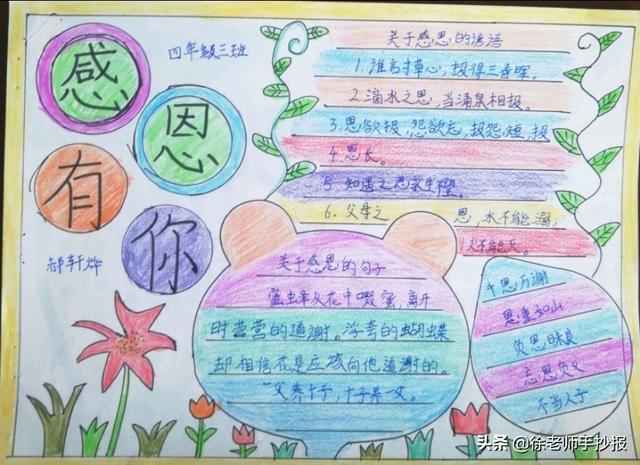 感
恩
有
你
四年级三班
郝轩烨
关于感恩的谚语
1.谁言寸草心,报得三春晖。
2.滴水之恩,当涌泉相报。
3.恩欲报,怨欲忘,报怨短,报
4.恩长。
5.知遇之恩
6.父母之恩,水不能溺,
火不能灭。
关于感恩的句子
蜜蜂从花中啜蜜,离开
时营营的道谢。浮夸的蝴蝶
却相信花是应该向他道谢的。
一父养十子,十子养一父。
千恩万谢
恩重如山
负恩昧良
忘恩负义
不当人子
头条 @徐老师手抄报